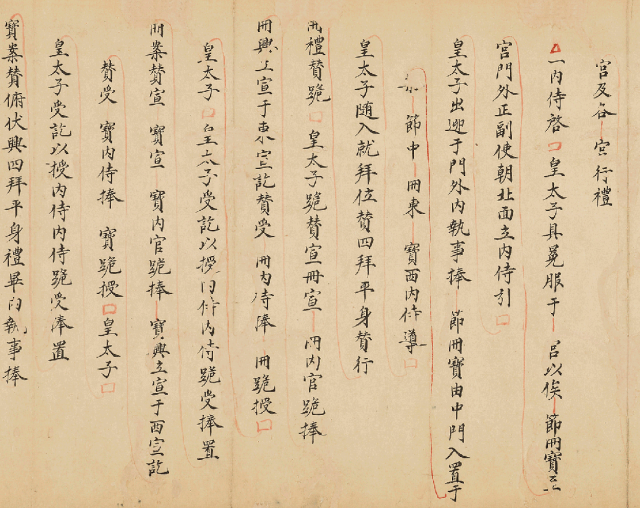 宮及各宮行禮
一內侍啓皇太子具冕服于宮以俟節冊寶至
宮門外正副使朝北面立內侍引
皇太子出迎于門外內執事捧節冊寶由中門入置于
案節中冊東寶西內侍導
皇太子随入就拜位贊四拜平身贊行
冊禮贊跪皇太子跪贊宣冊宣冊內官跪捧
冊興立宣于東宣訖贊受冊內侍捧冊跪授
皇太子皇太子受訖以授內侍內侍跪受捧置
冊案贊宣寶宣寶內官跪捧寶興立宣于西宣訖
贊受寶內侍捧寶跪授皇太子
皇太子受訖以授內侍內侍跪受捧置
寶案贊俯伏興四拜平身禮畢內執事捧